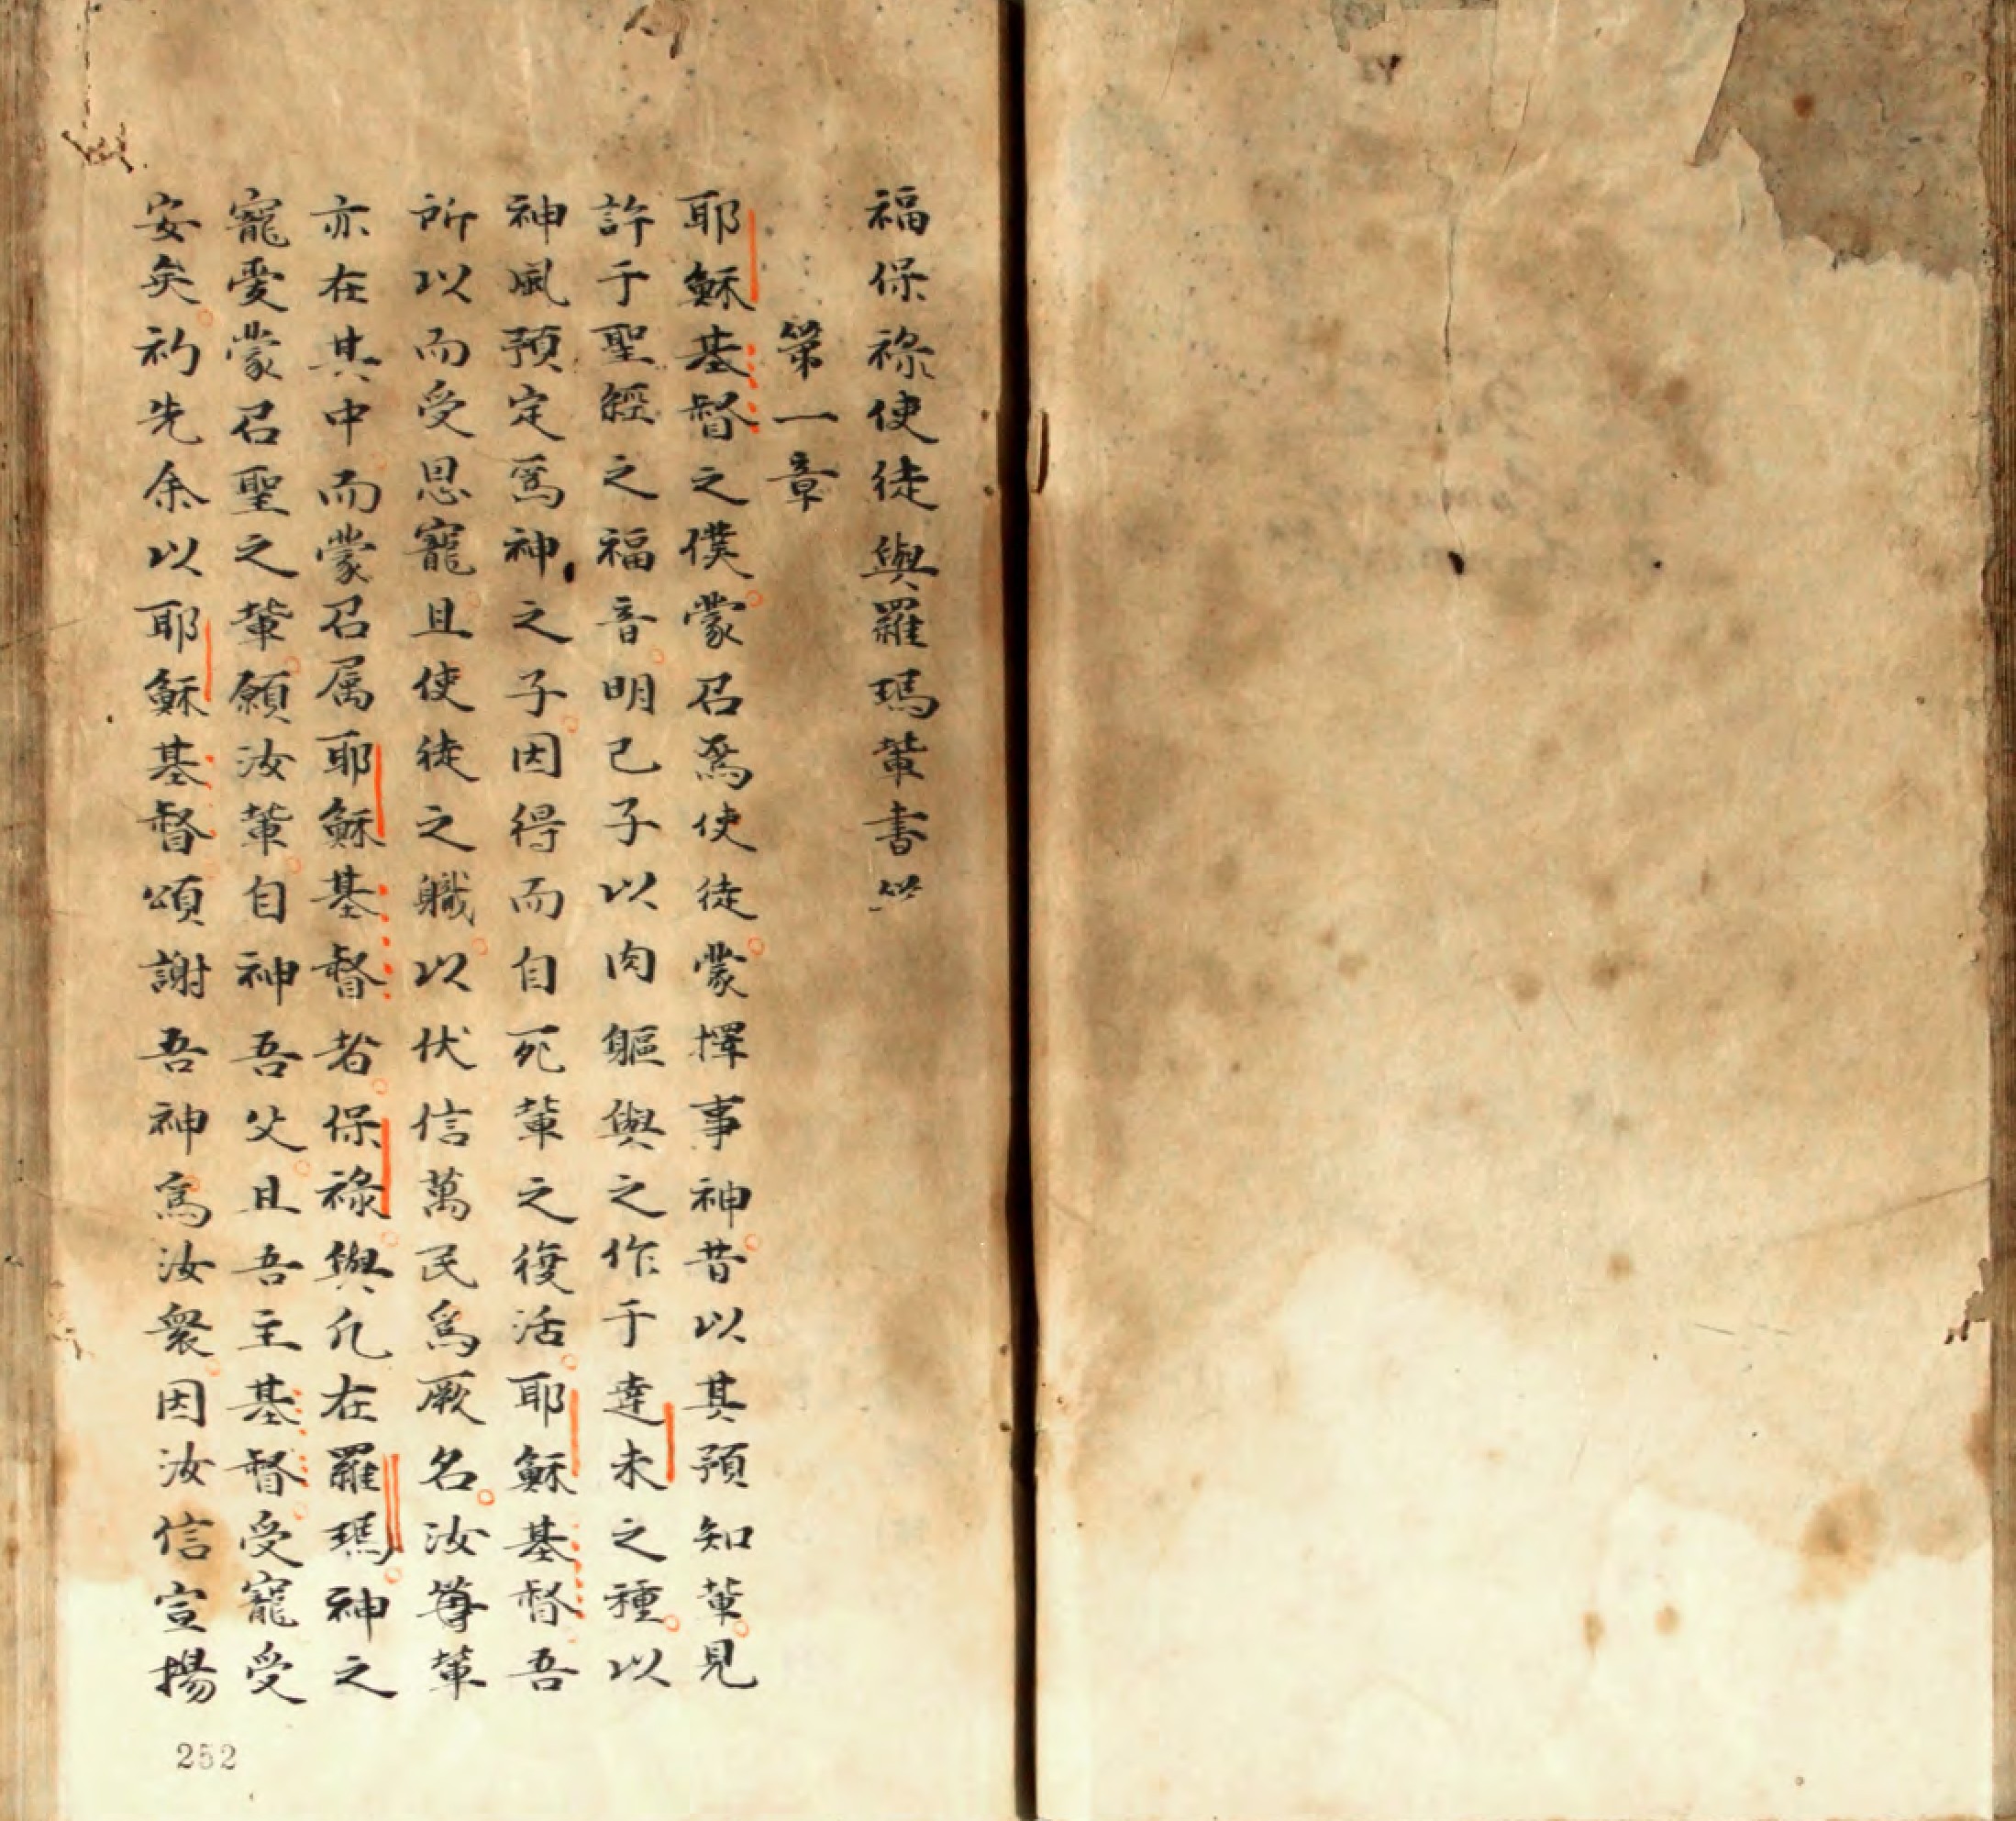 福保祿使徒與羅瑪輩書
第一章
耶穌基督之僕蒙召爲使徒蒙擇事神昔以其預知輩見
許于聖經之福音明己子以肉軀與之作于達未之種以
神風預定爲神之子因得而自死輩之復活耶穌基督吾
所以而受恩寵且使徒之軄以伏信萬民爲厥名汝等輩
亦在其中而蒙召属耶穌基督者保祿與凢在羅瑪神之
寵愛蒙召聖之輩願汝輩自神吾父且吾主基督受寵受
安矣礿先余以耶穌基督頌謝吾神爲汝衆因汝信宣揚
252